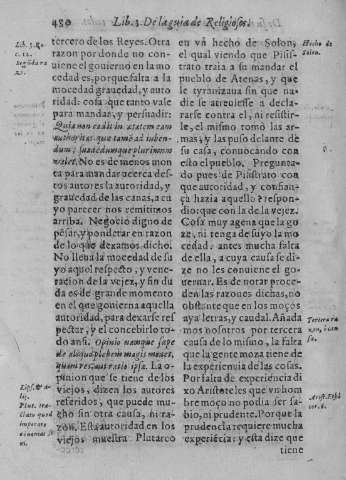 480 Lib. 3. De la guia de Religiosos.
Lib. 3. Re.
c. 12.
Segunda ra
zõ.
tercero de los Reyes. Otra
razon por donde no conui
ene el gouierno en la mo
cedad es, porque falta a la
mocedad grauedad, y auto
ridad: cosa que tanto vale
para mandar, y persuadir:
Quia non cadit in ætatem eam
authoritas quæ tam ad iuben-
dum; suadẽdum que plurimum
valet. No es de menos mon
ta para mandar acerca des-
tos autores la autoridad, y
grauedad de las canas, a cu
yo parecer nos remitimos
arriba. Negocio digno de
pesar, y ponderar en razon
de lo que dexamos dicho.
No lleua la mocedad de su-
yo aquel respecto, y vene-
racion de la vejez, y sin du
da es de grande momento
en el que gouierna aquella
autoridad, para dexarse res
pectar, y el concebirlo to-
do ansi. Opinio namque sæpe
de aliquo plebem magis mouet,
quam res aut ratio ipsa. La o-
pinion que se tiene de los
viejos, dizen los autores
referidos, que puede mu-
cho sin otra causa, ni ra-
zon. Esta autoridad en los
viejos muestra Plutarco
Plut.
en vn hecho de Solon,
el qual viendo que Pisis-
trato traia a su mandar el
pueblo de Atenas, y que
le tyranizaua sin que na-
die se atreuiesse a decla-
rarse contra el, ni resistir-
le, el mismo tomò las ar-
mas, y las puso delante de
su casa, conuocando con
esto el pueblo. Pregunta-
do pues de Pisistrato con
que autoridad, y confian-
ça hazia aquello? respon-
dio: que con la de la vejez.
Cosa muy agena que la go-
ze, ni tenga de suyo la mo
cedad: antes mucha falta
de ella, a cuya causa se di-
ze no les conuiene el go-
uernar. Es de notar proce-
den las razones dichas, no
obstante que en los moços
aya letras, y caudal. Añada
mos nosotros por tercera
causa de lo mismo, la falta
que la gente moza tiene de
la experiencia de las cosas.
Por falta de experiencia di
xo Aristoteles que vn hom
bre moço no podia ser sa-
bio, ni prudente. Porque la
prudencia requiere mucha
experiẽcia: y esta dize que
Hecho de
Solon.
Tercera ra
zon, ò cau
sa.
tiene